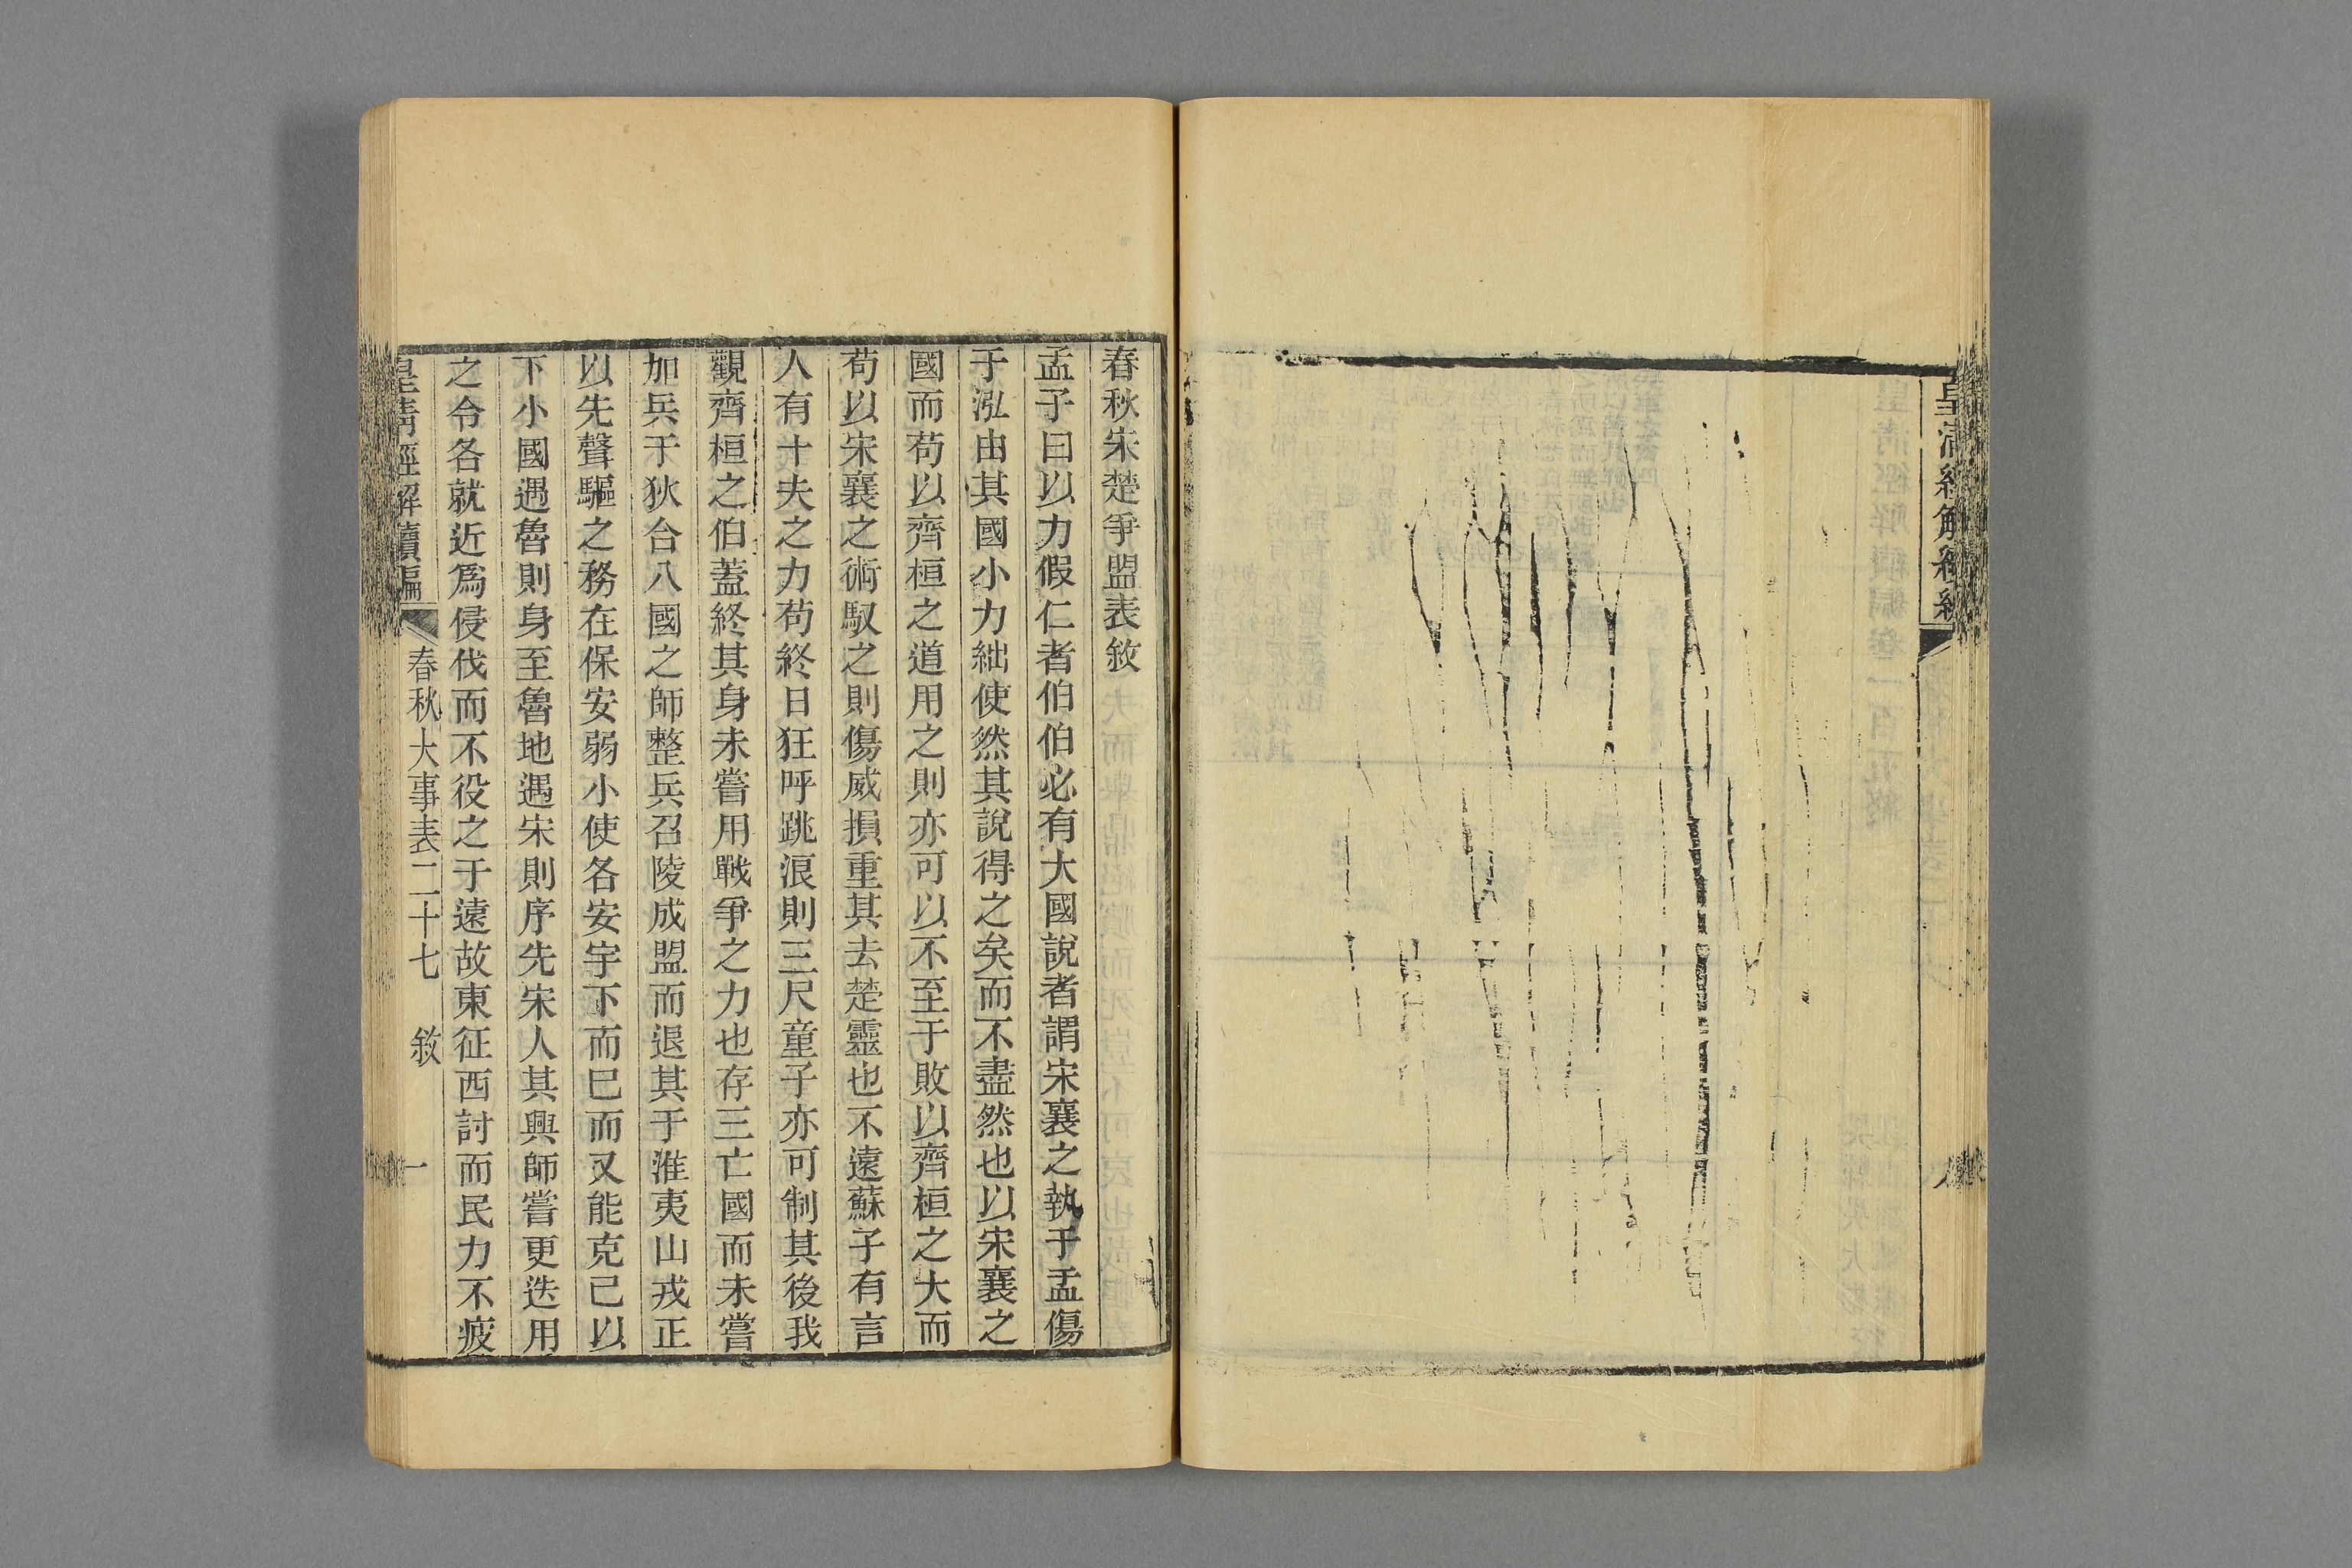 皇清經解續
春秋宋楚爭盟表敘
孟子曰以力假仁者伯伯必有大國說者謂宋襄之執于盂傷
于泓由其國小力絀使然其說得之矣而不盡然也以宋襄之
國而苟以齊桓之道用之則亦可以不至于敗以齊桓之大而
苟以宋襄之術馭之則傷威損重其去楚靈也不遠蘇子有言
人有十夫之力苟終日狂呼跳浪則三尺童子亦可制其後我
觀齊桓之伯蓋終其身未嘗用戰爭之力也存三亡國而未嘗
加兵于狄合八國之師整兵召陵成盟而退其于淮夷山戎正
以先聲驅之務在保安弱小使各安宇下而已而又能克己以
下小國遇魯則身至魯地遇宋則序先宋人其興師嘗更迭用
之令各就近爲侵伐而不役之于遠故東征西討而民力不疲
皇清經解續編 春秋大事表二十七 敘 一